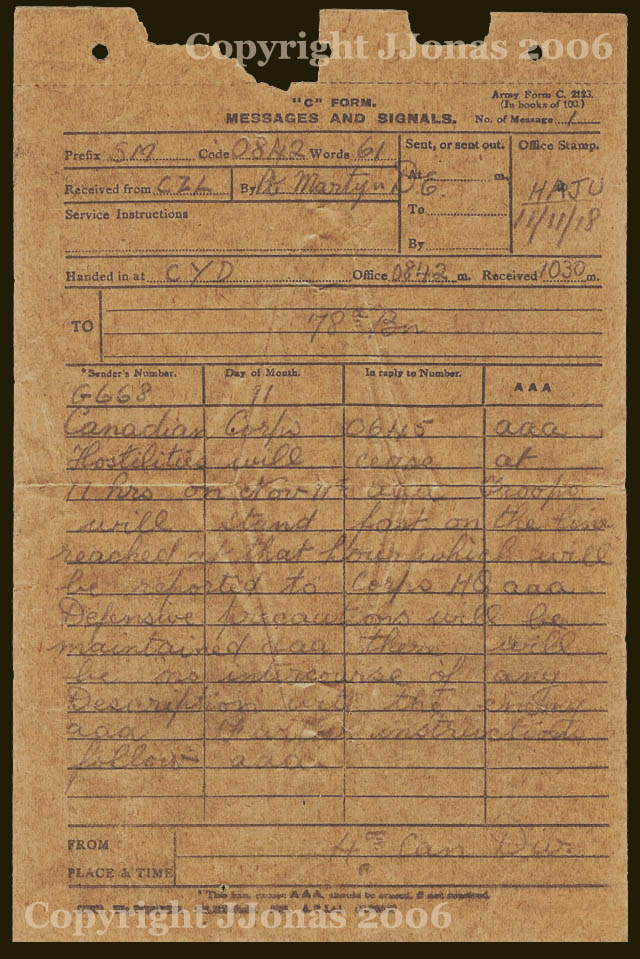 Copyright JJonas 2006
Army Form C. 2123.
(In books of 100.)
"C" FORM.
MESSAGES AND SIGNALS. No. of Message 1
Prefix SM Code 0842 Words 61 Sent, or sent out. Office Stamp.
At m.
Received from CZL By Martyn
To
HAJU
11/11/18
Service Instructions
By
Handed in at CYD Office 0842 m. Received 1030 m.
TO 78th Bn
*Sender's Number. Day of Month. In reply to Number. AAA
G668 11
Canadian Corps 0645 aaa
Hostilities will cease at
11 hrs on Nov 11th aaa Troops
will stand fast on the line
reached at that hour which will
be reported to Corps HQ aaa
Defensive precautions will be
maintained aaa there will
be no intercourse of any
Description with the enemy
aaa Further instructions
follow aaa
FROM 4th Can Div.
PLACE & TIME
*This line, except AAA, should be erased, if not required.
Copyright JJonas 2006